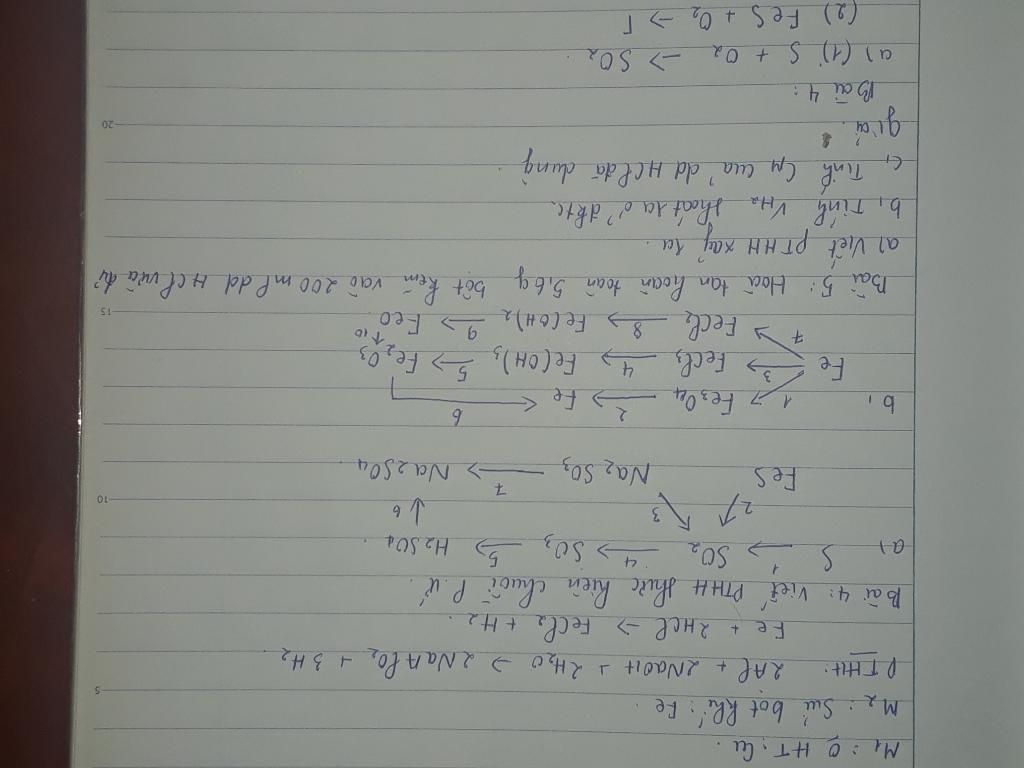 M1: Q HT: Cu.
M2: Sủi bọt khí: Fe.
PTHH: 2Al + 2NaOH + 2H2O → 2NaAlO2 + 3H2
Fe + 2HCl → FeCl2 + H2.
Bài 4: Viết PTHH thực hiện chuỗi P.ư
a) S —1→ SO2 —4→ SO3 —5→ H2SO4.
2 3 ↓6
FeS Na2SO3 —7→ Na2SO4
b, 1 Fe3O4 —2→ Fe 6
Fe —3→ FeCl3 —4→ Fe(OH)3 —5→ Fe2O3
7 FeCl2 —8→ Fe(OH)2 —9→ FeO ↑10
Bài 5: Hoà tan hoàn toàn 5,6g bột kẽm vào 200 ml dd HCl vừa đủ
a) Viết PTHH xảy ra.
b, Tính VH2 thoát ra ở đktc.
c, Tính CM của dd HCl đã dùng.
giải.
Bài 4:
a) (1) S + O2 → SO2
(2) FeS + O2 →
5
10
15
20